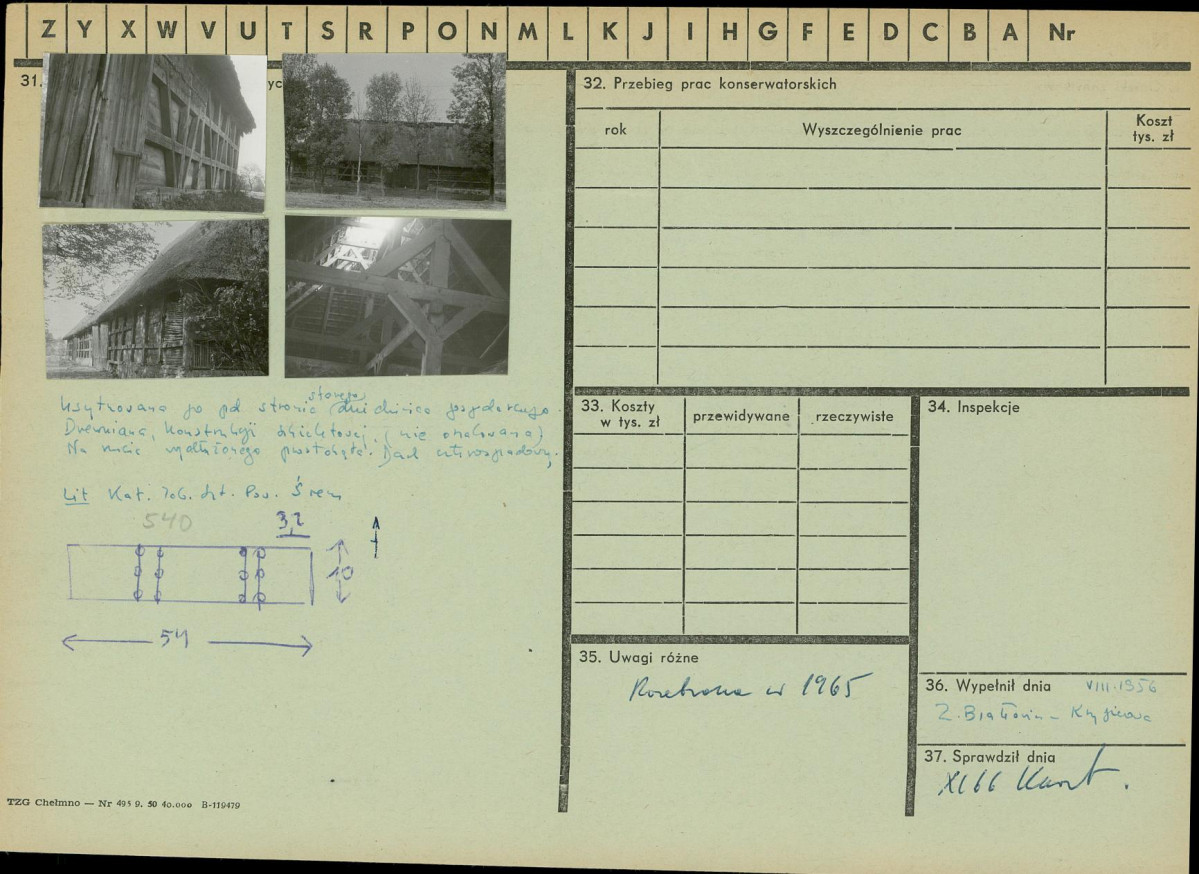 Z Y X W V U T S R P O N M L K J I H G F E D C B A Nr
31.
yc
Usytuowana po pd stronie starego dziedzińca gospodarczego.
Drewniana, konstrukcji szkieletowej, (nie oszalowana)
Na rzucie wydłużonego prostokąta. Dach czterospadowy.
Lit Kat. Zab. Szt. Pow. Śrem
540
32
10
54
TZG Chełmno — Nr 495 9. 50 40.000 B-119479
32. Przebieg prac konserwatorskich
rok
Wyszczególnienie prac
Koszt
tys. zł
33. Koszty
w tys. zł
przewidywane
rzeczywiste
34. Inspekcje
35. Uwagi różne
Rozebrana w 1965
36. Wypełnił dnia VIII.1956
Z. Białłowicz-Krygierowa
37. Sprawdził dnia
XI 66